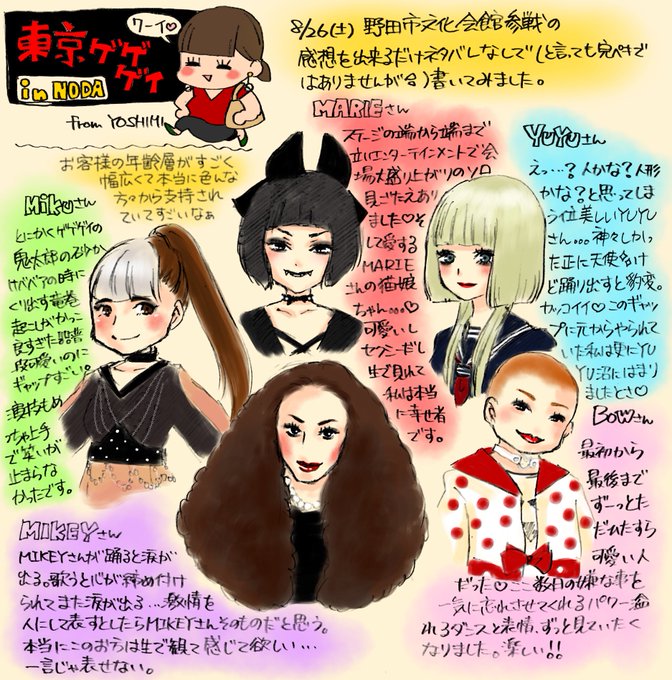 ワーイ♡
東京ゲゲゲイ
in NODA
from YOSHIMI
8/26(土) 野田市文化会館参戦の
感想を出来るだけネタバレなしで(と言っても完ぺきで
はありませんが)書いてみました。
お客様の年齢層がすごく
幅広くて本当に色んな
方々から支持され
ていてすごいなぁ
MARIEさん
ステージの端から端まで
エンターテインメントで会
場大盛り上がりのソロ
見ごたえあり
ました♡そ
して愛する
MARIE
さんの猫娘
ちゃん…♡
可愛いし
セクシーだし
生で見れて
私は本当
に幸せ者
です。
YUYUさん
えっ…?人かな?人形
かな?と思ってしま
う位美しいYUYU
さん…。神々しかっ
た正に天使だけ
ど踊り出すと豹変。
カッコイイ♡このギャッ
プに元からやられて
いた私は更にYU
YU沼にはまり
ましたとさ♡
Mikuさん
とにかくゲゲゲイの
鬼太郎の
の時に
くり出す竜巻
起こしがかっこ
良すぎた
可愛いのに
ギャップすごい。
演技もめ
っちゃ上手
で笑いが
止まらな
かったです。
BOWさん
最初から
最後まで
ずーっとた
だひたすら
可愛い人
だった♡ここ数日の嫌な事を
一気に忘れさせてくれるパワー溢
れるダンスと表情、ずっと見ていたく
なりました。楽しい!!
MIKEYさん
MIKEYさんが踊ると涙が
出る。歌うと心が締め付け
られてまた涙が出る…激情を
人にして表すとしたらMIKEYさんそのものだと思う。
本当にこのお方は生で観て感じて欲しい…
一言じゃ表せない。